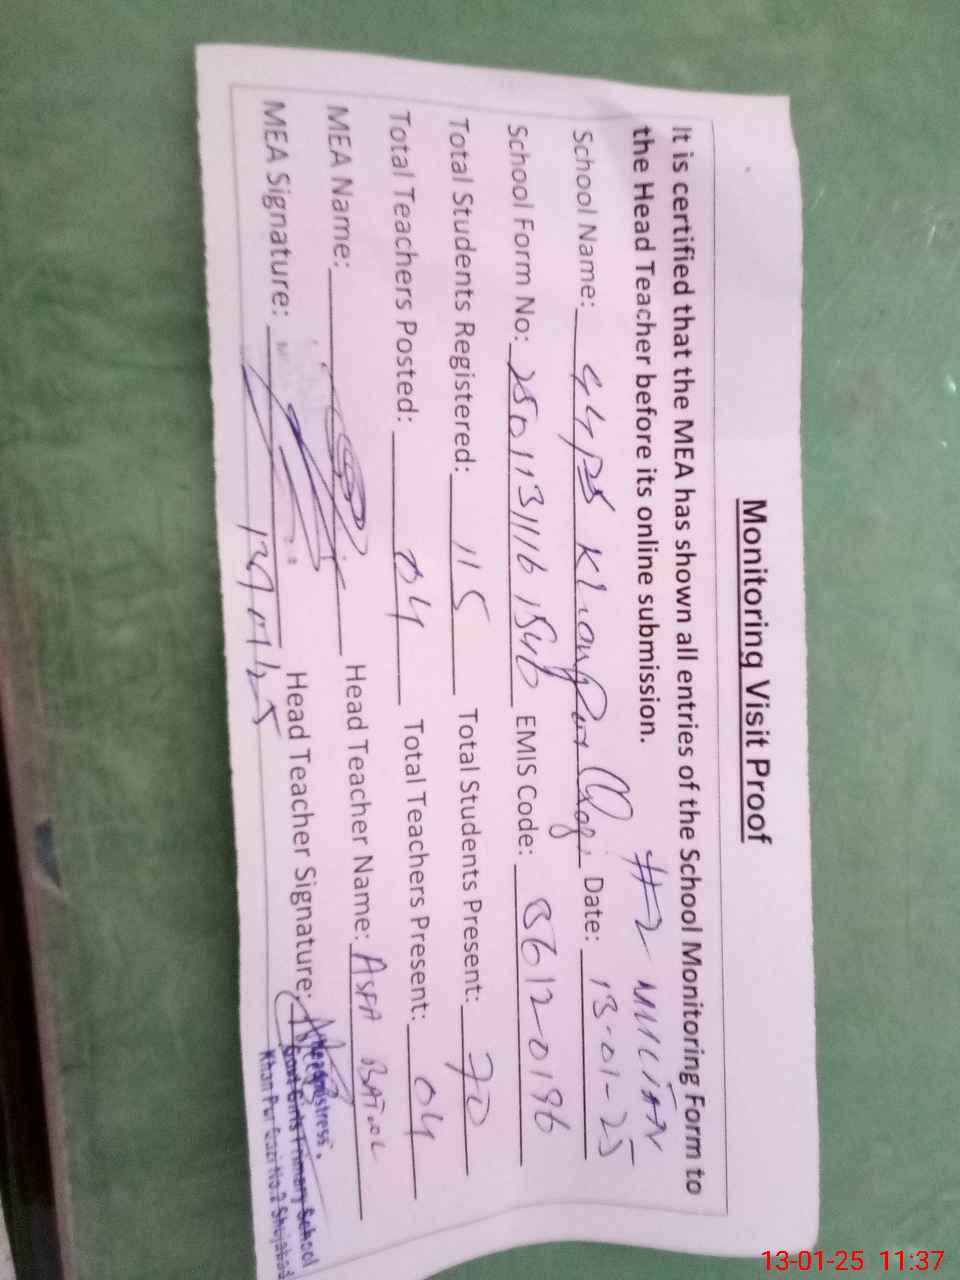 Monitoring Visit Proof
It is certified that the MEA has shown all entries of the School Monitoring Form to
the Head Teacher before its online submission. #2 MULTAN
School Name: GGPS Khanpur Qazi Date: 13-01-25
School Form No: 250113111616 EMIS Code: 36120196
Total Students Registered: 115 Total Students Present: 70
Total Teachers Posted: 04 Total Teachers Present: 04
MEA Name: Head Teacher Name: ASFA BATOOL
MEA Signature: Head Teacher Signature:
13/01/25
Headmistress.
Govt Girls Primary School
Khan Pur Qazi No.2 Shujabad
13-01-25 11:37